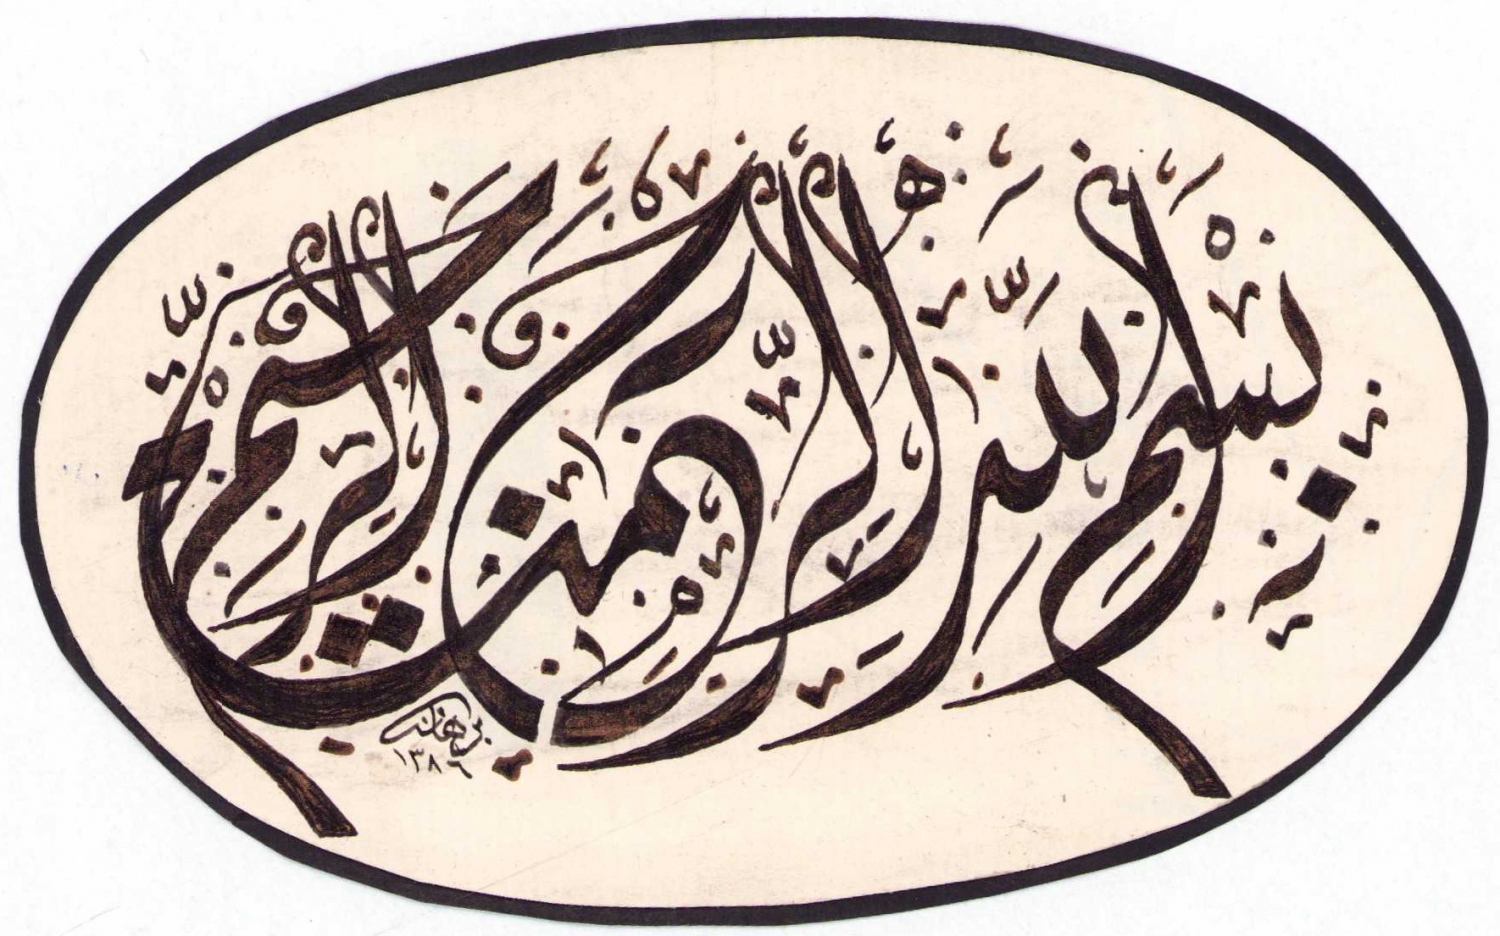 بسم الله الرحمن الرحيم
برهان
١٣٨٦